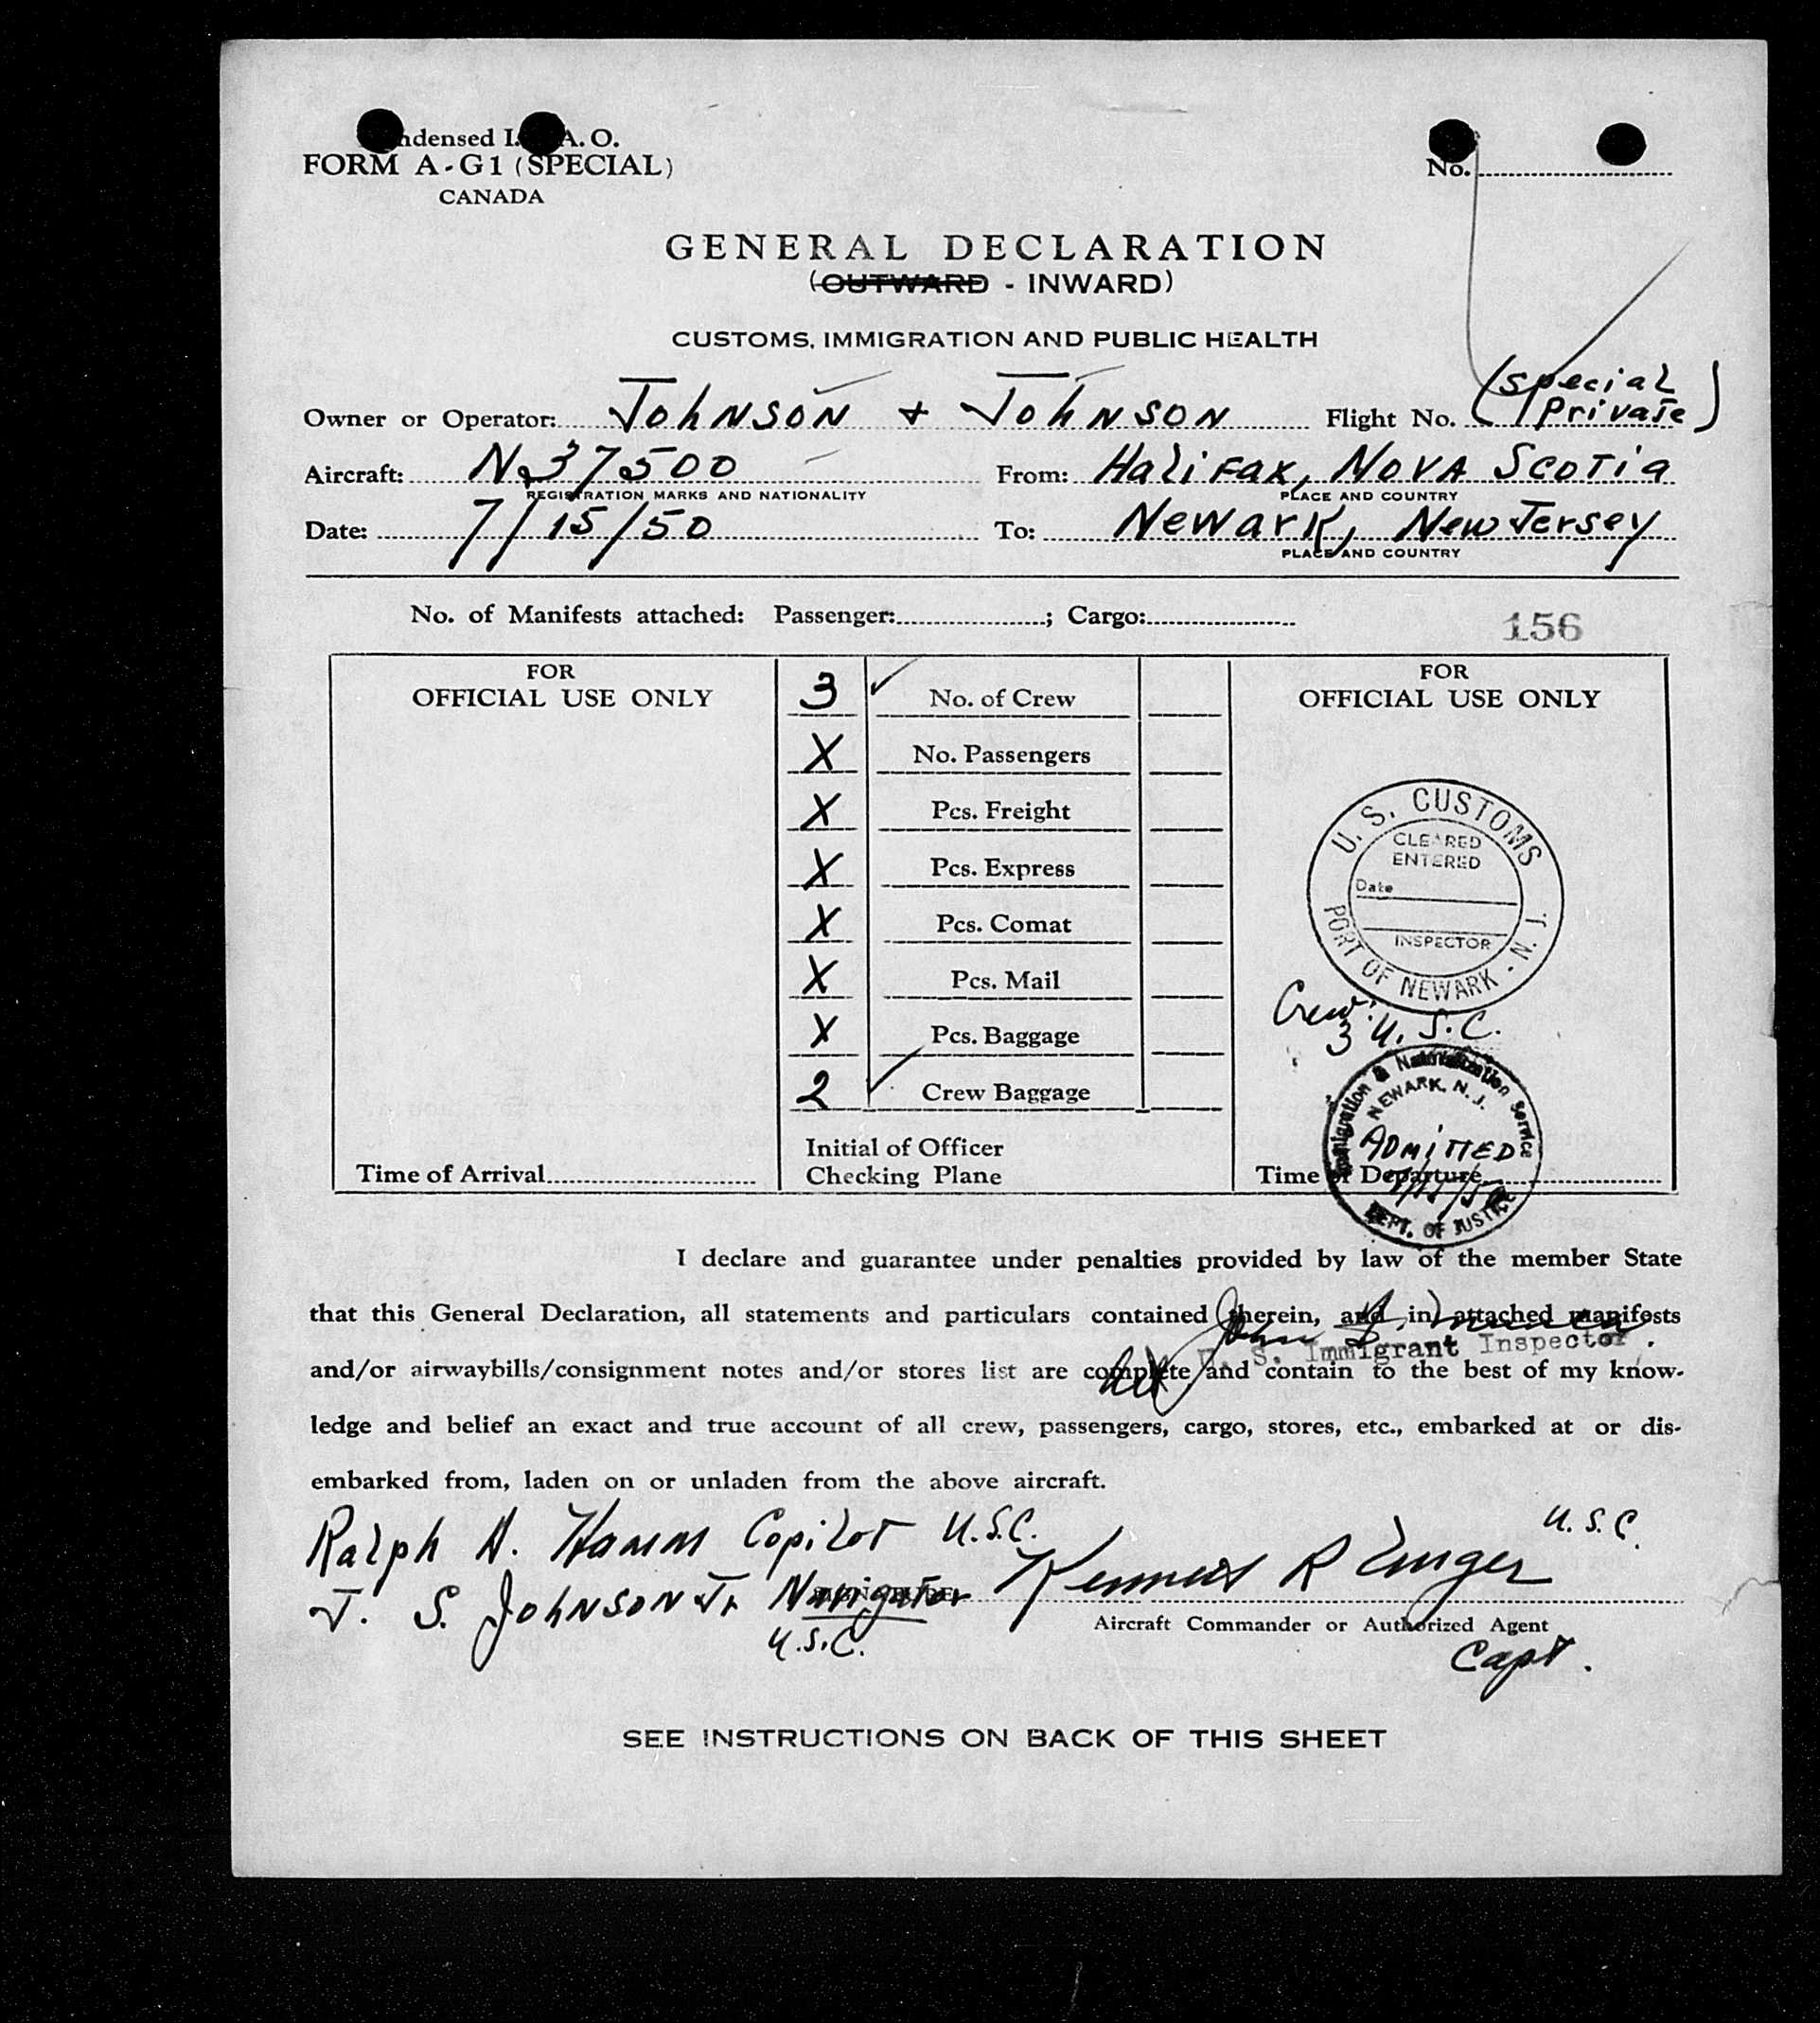 ndensed I. A. O.
FORM A-G1 (SPECIAL)
CANADA
No.
GENERAL DECLARATION
(OUTWARD - INWARD)
CUSTOMS, IMMIGRATION AND PUBLIC HEALTH
Owner or Operator: Johnson + Johnson Flight No. (Special
Private)
Aircraft: N37500 From: Halifax, Nova Scotia
REGISTRATION MARKS AND NATIONALITY PLACE AND COUNTRY
Date: 7/15/50 To: Newark, New Jersey
PLACE AND COUNTRY
No. of Manifests attached: Passenger: ; Cargo:
156
FOR
OFFICIAL USE ONLY
Time of Arrival
3 No. of Crew
X No. Passengers
X Pcs. Freight
X Pcs. Express
X Pcs. Comat
X Pcs. Mail
X Pcs. Baggage
2 Crew Baggage
Initial of Officer
Checking Plane
FOR
OFFICIAL USE ONLY
U. S. CUSTOMS
CLEARED
ENTERED
Date
INSPECTOR
PORT OF NEWARK - N. J.
Crew:
3 U.S.C.
Immigration & Naturalization Service
NEWARK, N. J.
ADMITTED
7/15/50
DEPT. OF JUSTICE
Time of Departure
I declare and guarantee under penalties provided by law of the member State
that this General Declaration, all statements and particulars contained therein, and in attached manifests
U. S. Immigrant Inspector.
and/or airwaybills/consignment notes and/or stores list are complete and contain to the best of my know-
ledge and belief an exact and true account of all crew, passengers, cargo, stores, etc., embarked at or dis-
embarked from, laden on or unladen from the above aircraft.
Ralph H. Hamm Copilot U.S.C.
U.S.C.
J. S. Johnson Jr Navigator
U.S.C.
Kenneth R Unger
Aircraft Commander or Authorized Agent
Capt.
SEE INSTRUCTIONS ON BACK OF THIS SHEET